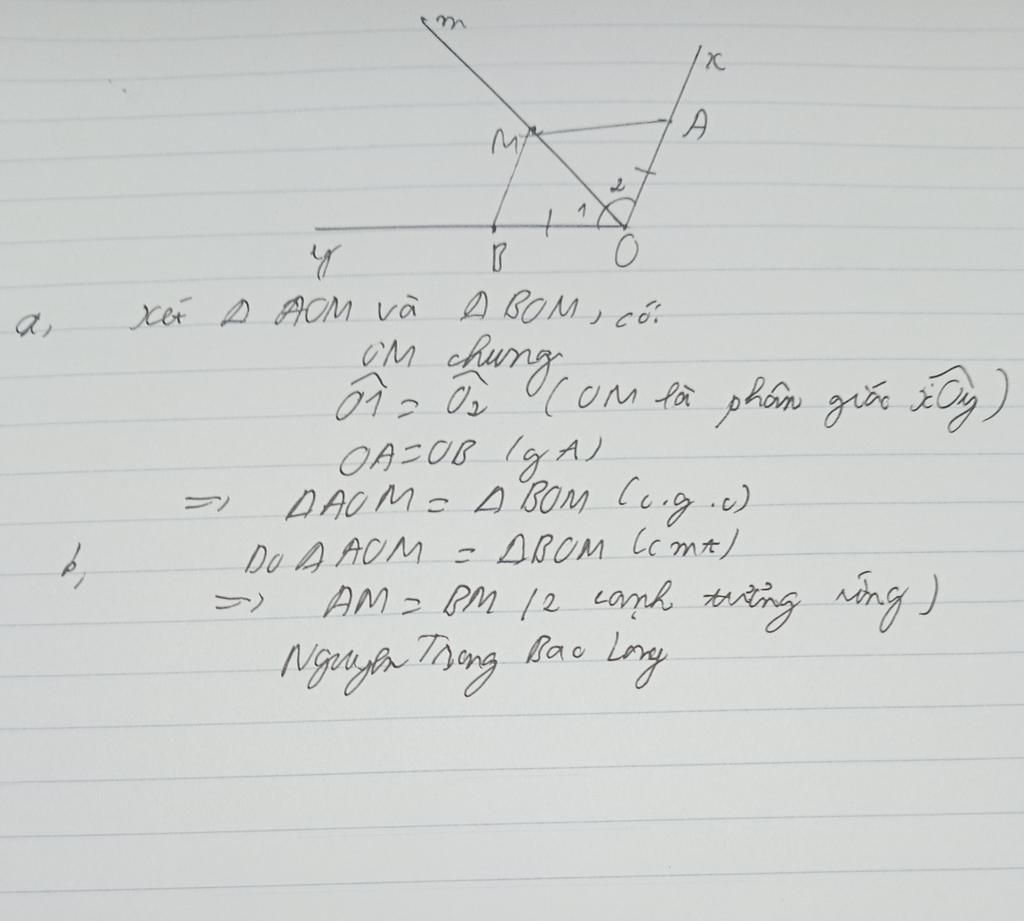 m
x
M
A
2
1
y
B
O
a, xét Δ AOM và Δ BOM, có:
OM chung
Ô1 = Ô2 (OM là phân giác xÔy)
OA=OB (gA)
=> ΔAOM = Δ BOM (c.g.c)
b, Do Δ AOM = ΔBOM (cmt)
=> AM = BM (2 cạnh tương ứng)
Nguyen Trong Bao Long